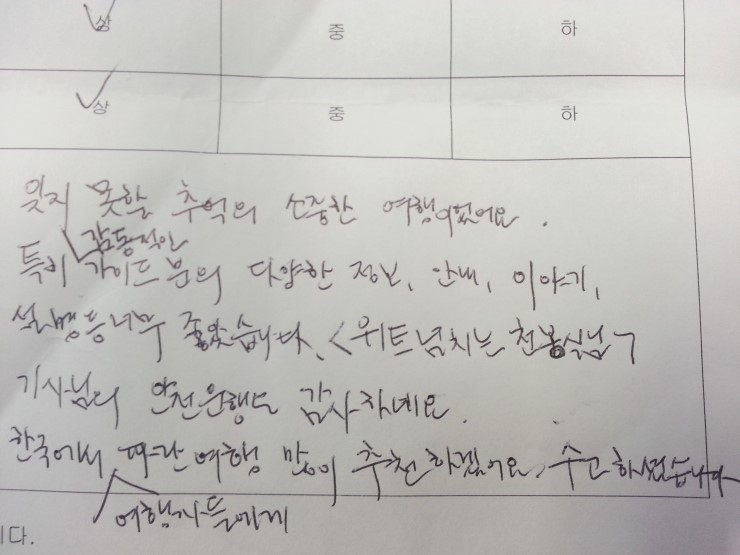 상 중 하
상 중 하
잊지 못할 추억의 소중한 여행이었어요.
감동적인
특히 가이드 분의 다양한 정보, 안내, 이야기,
설명등 너무 좋았습니다. <위트넘치는 천봉실님>
기사님의 안전운행도 감사하네요.
한국에서 여행 많이 추천하겠어요. 수고하셨습니다
여행자들에게
니다.